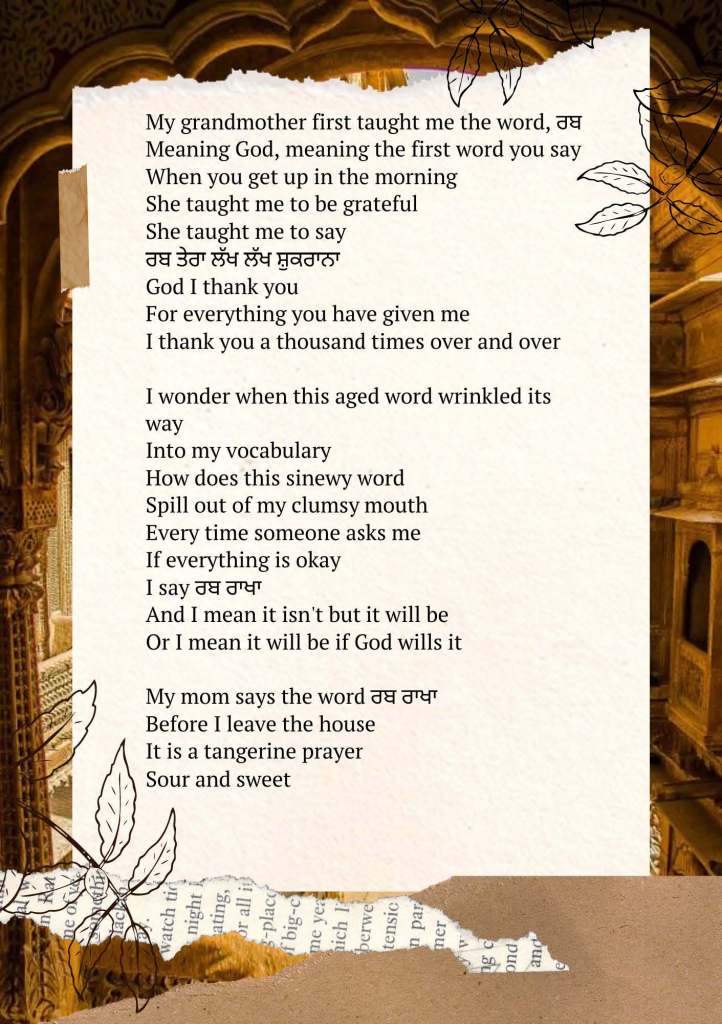 My grandmother first taught me the word, ਰਬ
Meaning God, meaning the first word you say
When you get up in the morning
She taught me to be grateful
She taught me to say
ਰਬ ਤੇਰਾ ਲੱਖ ਲੱਖ ਸ਼ੁਕਰਾਨਾ
God I thank you
For everything you have given me
I thank you a thousand times over and over
I wonder when this aged word wrinkled its
way
Into my vocabulary
How does this sinewy word
Spill out of my clumsy mouth
Every time someone asks me
If everything is okay
I say ਰਬ ਰਾਖਾ
And I mean it isn't but it will be
Or I mean it will be if God wills it
My mom says the word ਰਬ ਰਾਖਾ
Before I leave the house
It is a tangerine prayer
Sour and sweet